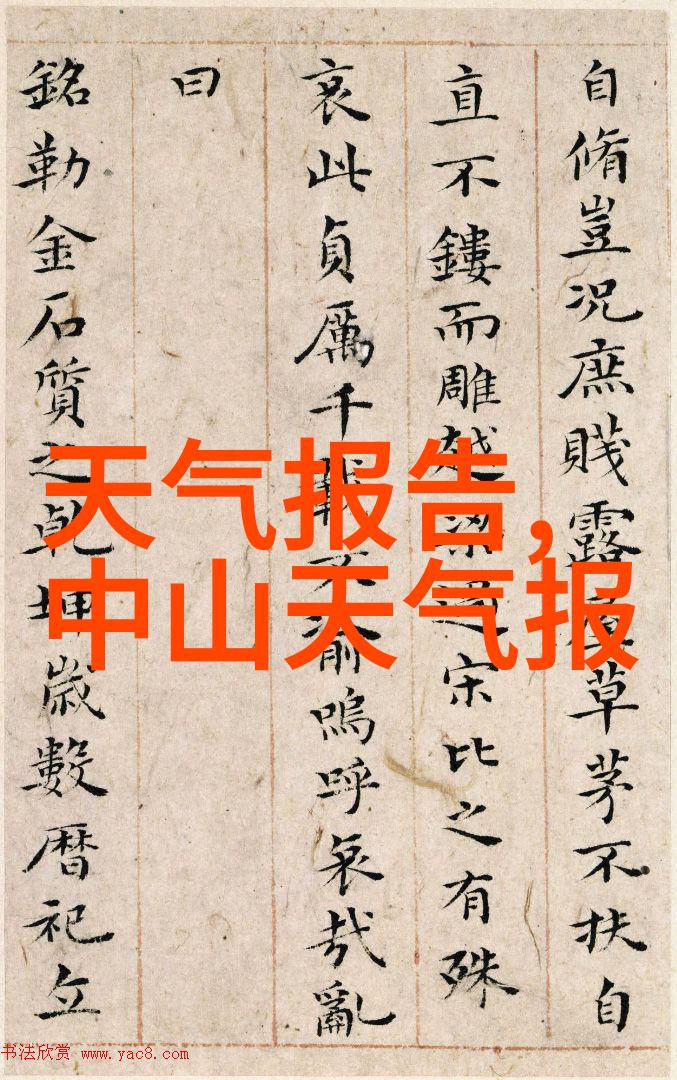 天气报告,
中山天气报
自脩豈况庶賎露草茅不扶自
直不鏤而雕越梁過宋比之有殊
哀此貞厲千載不渝嗚呼哀哉亂
曰
銘勒金石質之乾坤歲數曆祀丘
书法欣赏 www.yac8.com